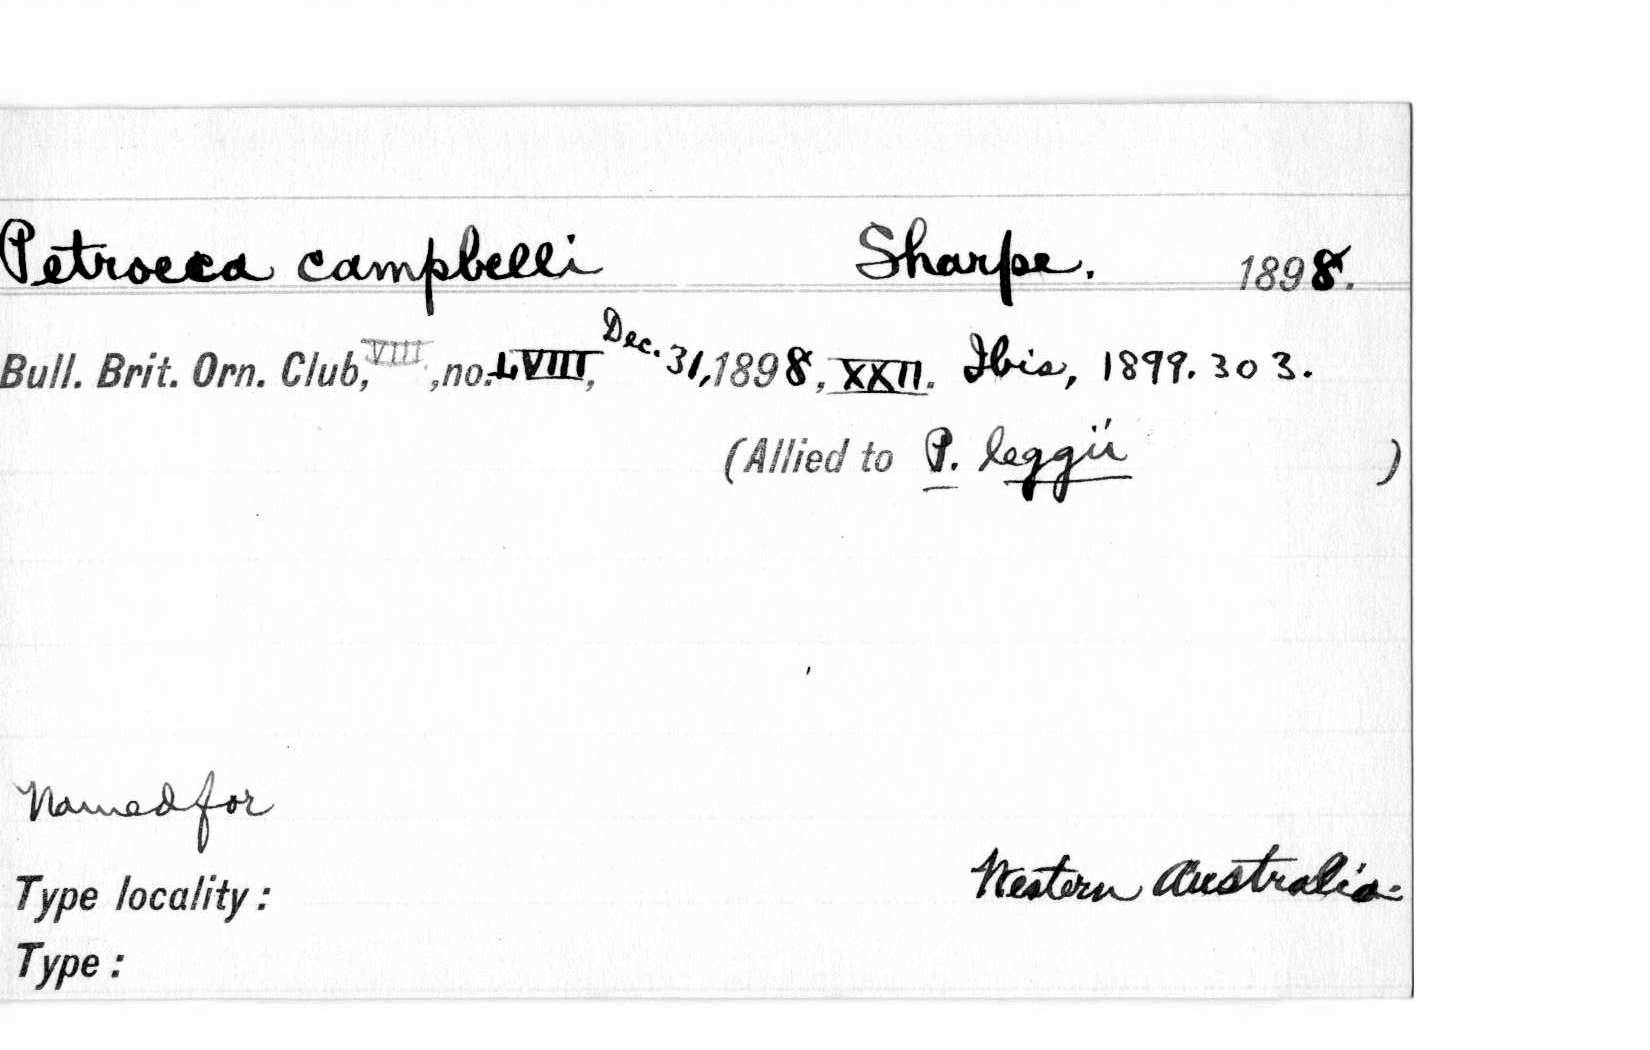 Petroeca campbelli Sharpe. 1898.
Bull. Brit. Orn. Club, VIII, no. LVIII, Dec. 31, 1898, XXII. Ibis, 1899. 303.
(Allied to P. leggii )
Named for
Western Australia.
Type locality:
Type: